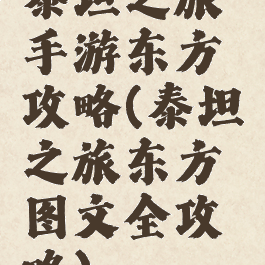 泰坦之旅
手游东方
攻略(泰坦
之旅东方
图文全攻
略)